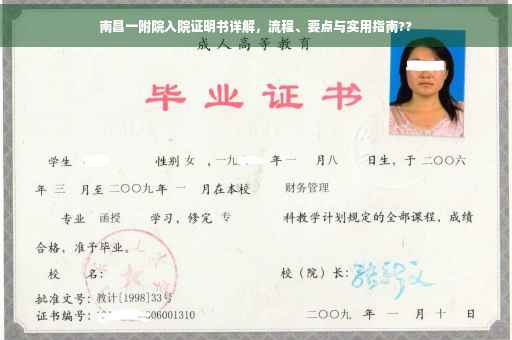 南昌一附院入院证明书详解，流程、要点与实用指南??
成人高等教育
毕业证书
学生 性别 女 ，一九 年 一 月八 日生，于 二〇〇六
年 三 月至 二〇〇九 年 一 月在本校 财务管理
专业 函授 学习，修完 专 科教学计划规定的全部课程，成绩
合格，准予毕业。
校 名： 校（院）长：
批准文号：教计[1998]33号
证书编号： 06001310 二〇〇九 年 一 月 十 日